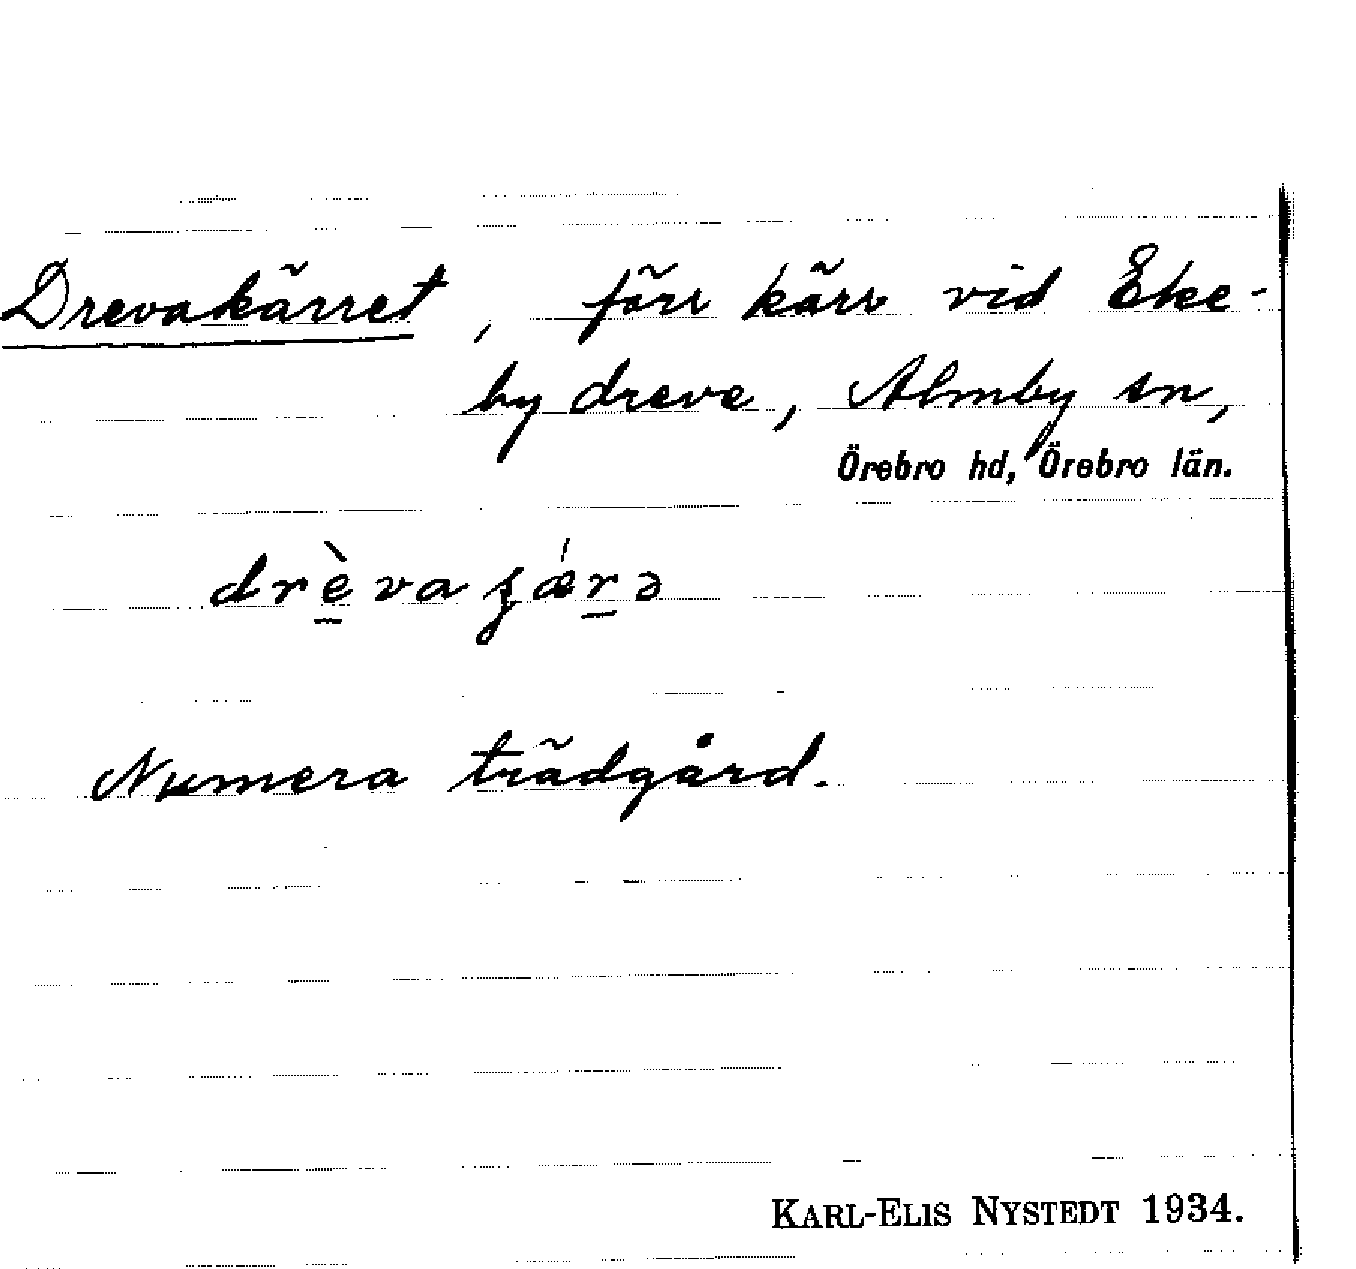 Drevakärret, förr kärr vid Eke-
by dreve, Almby sn,
Örebro hd, Örebro län.
drèvaʂǽrə
Numera trädgård.
KARL-ELIS NYSTEDT 1934.